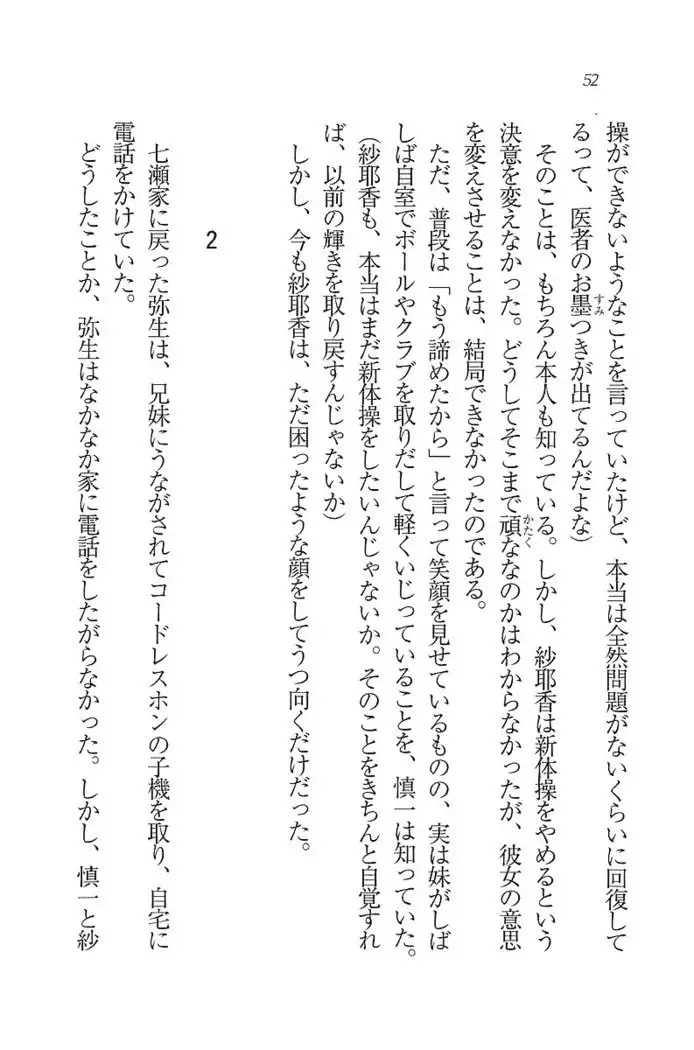 52
操ができないようなことを言っていたけど、本当は全然問題がないくらいに回復して
るって、医者のお墨つきが出てるんだよな）
そのことは、もちろん本人も知っている。しかし、紗耶香は新体操をやめるという
決意を変えなかった。どうしてそこまで頑ななのかはわからなかったが、彼女の意思
を変えさせることは、結局できなかったのである。
ただ、普段は「もう諦めたから」と言って笑顔を見せているものの、実は妹がしば
しば自室でボールやクラブを取りだして軽くいじっていることを、慎一は知っていた。
（紗耶香も、本当はまだ新体操をしたいんじゃないか。そのことをきちんと自覚すれ
ば、以前の輝きを取り戻すんじゃないか）
しかし、今も紗耶香は、ただ困ったような顔をしてうつ向くだけだった。
2
七瀬家に戻った弥生は、兄妹にうながされてコードレスホンの子機を取り、自宅に
電話をかけていた。
どうしたことか、弥生はなかなか家に電話をしたがらなかった。しかし、慎一と紗